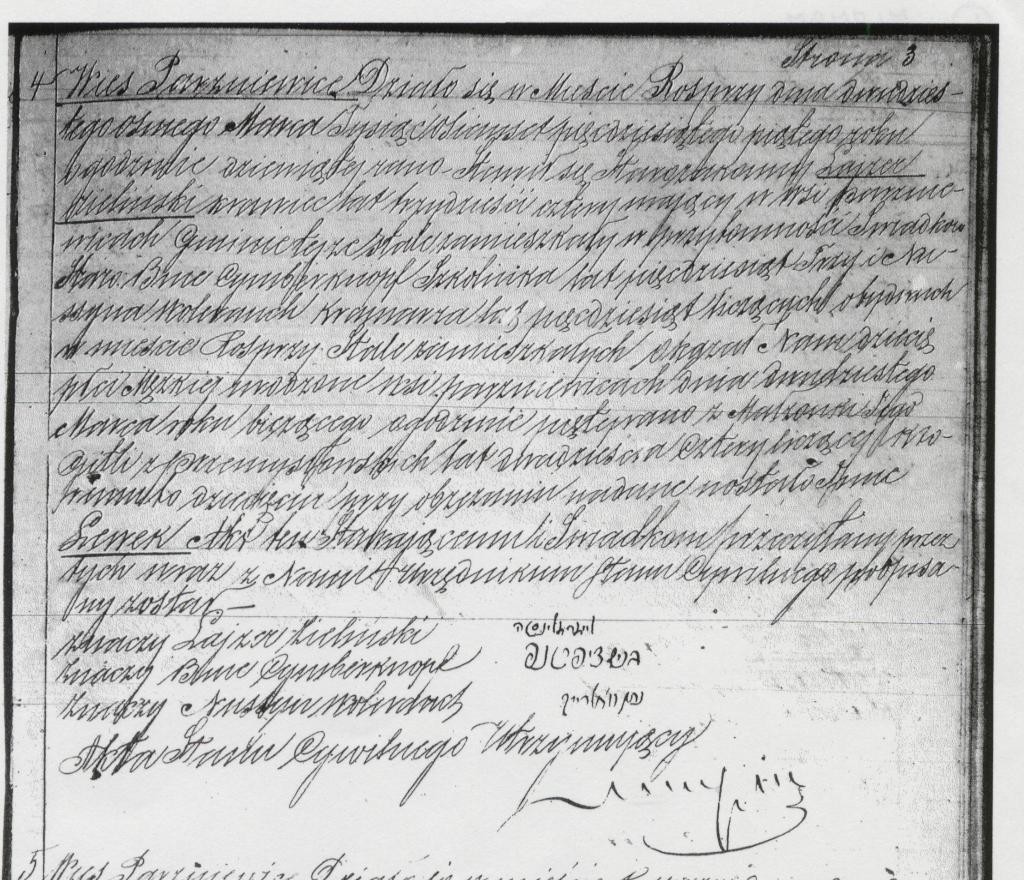 Strona 3
4 Wieś Parzniewice Działo się w Mieście Rosprzy dnia dwudzies-
tego osmego Marca Tysiąc ośmset pięcdziesiątego piątego roku
o godzinie dziewiątej rano Stawił się Starozakonny Lajzer
Zieliński krawiec lat trzydzieści cztery mający w wsi Parznie-
wicach Gminie tejże stale zamieszkały w przytomności Świadków
Staro. Bine Cymberknopf Szkolnika lat pięcdziesiąt Trzy i Na-
ssyna Wolrauch kramarza lat pięcdziesiąt liczących obydwóch
w mieście Rosprzy Stale zamieszkałych okazał Nam dziecię
płci Męzkiej urodzone wsi parzniewicach dnia dwudziestego
Marca roku bieżącego o godzinie piątej rano z Małżonki Jego
Gitli z lat dwadzieścia cztery liczący
dziecięciu przy obrzezaniu nadane zostało Imie
Lewek Akt ten Stawającemu i Świadkom przeczytany przez
tych wraz z Nami Urzędnikiem Stanu Cywilnego podpisa-
ny został —
znaczy Lajzer Zieliński
znaczy Bine Cymberknopf
znaczy Nussyn
Akta Stanu Cywilnego Utrzymujący
5 Wieś Parzniewice Działo się w mieście